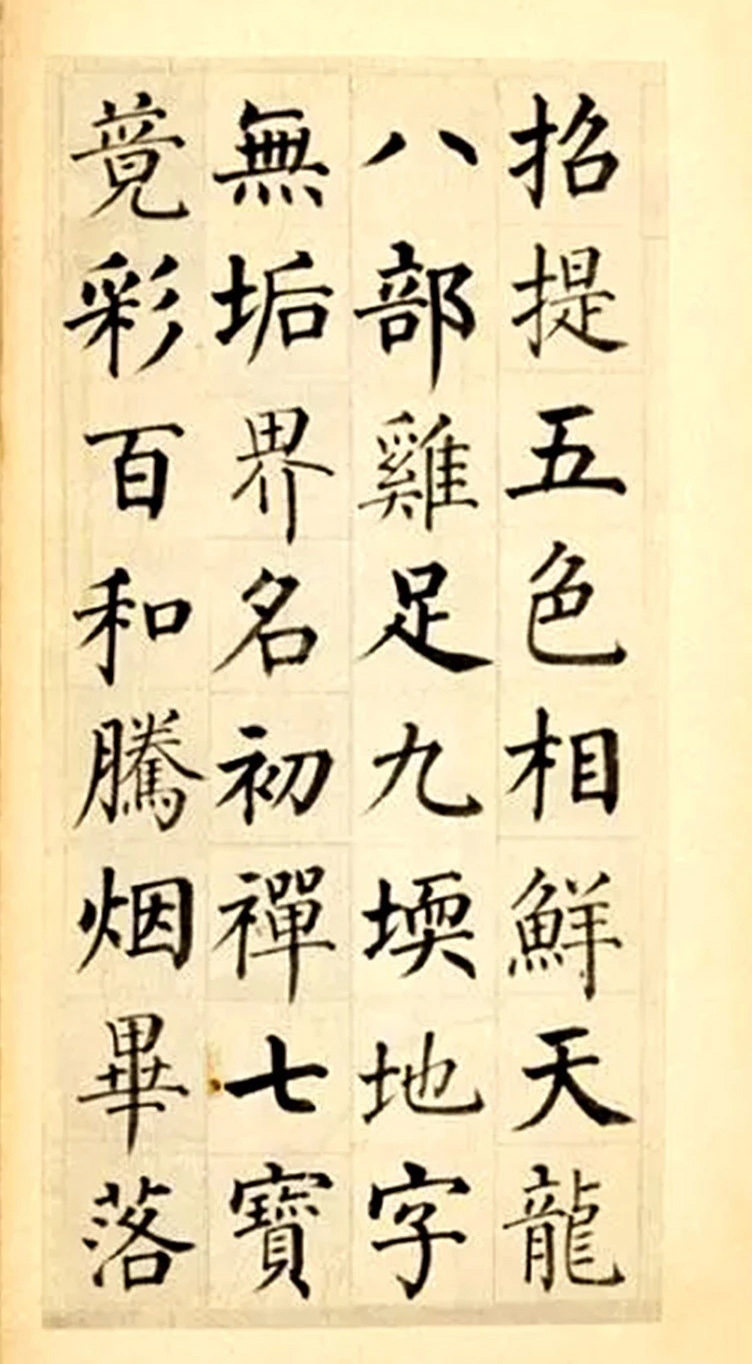 招提五色相鮮天龍
八部雞足九堧地字
無垢界名初禪七寶
竟彩百和騰烟畢落